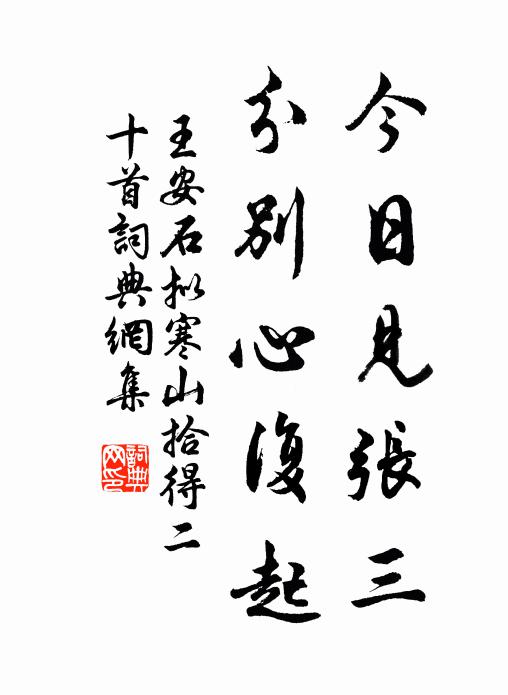 今日見張三
分別心復起
王安石拟寒山拾得二
十首詞典網集
詞典
网印